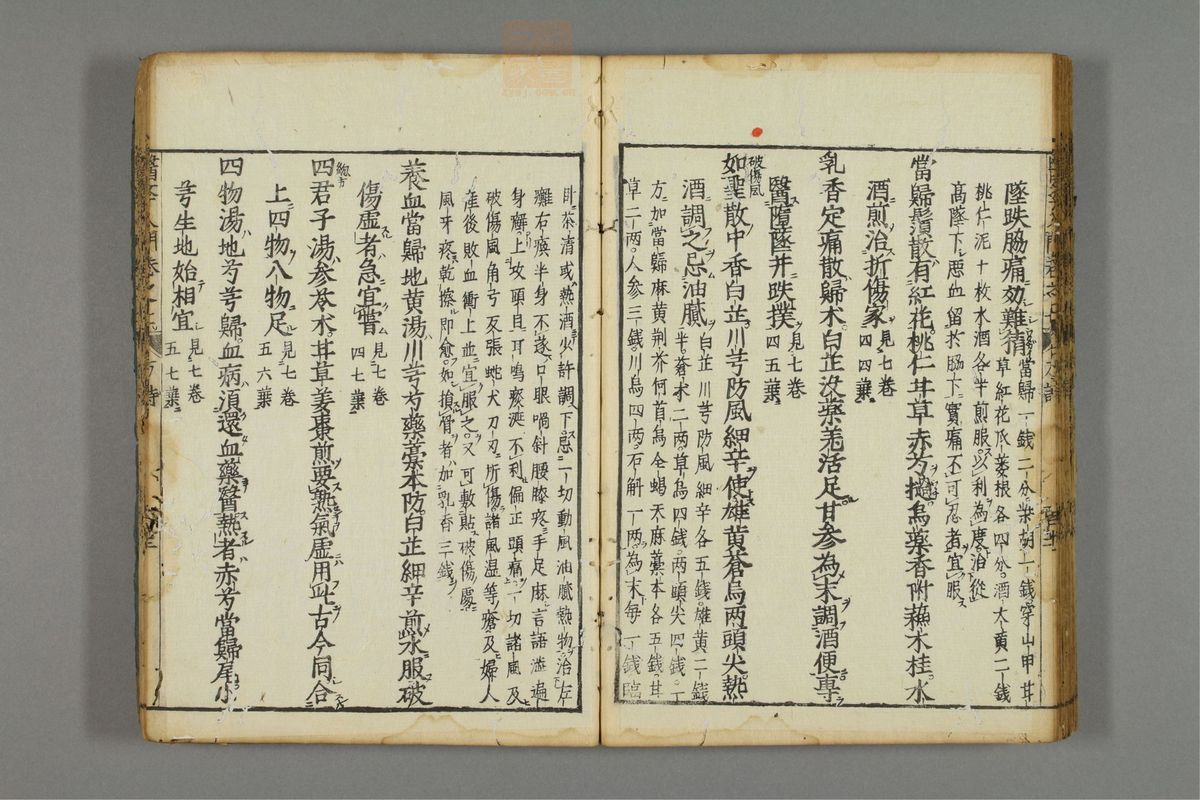 墜跌脇痛効難猜 當歸一錢二分柴胡一錢穿山甲甘
草紅花瓜蔞根各四分酒大黄二錢
桃仁泥十枚水酒各半煎服以利為度治從
高墜下惡血留於脇下實痛不可忍者宜服
當歸鬚散有紅花桃仁甘草赤芍攙烏藥香附蘇木桂水
酒煎治折傷家 見七卷
四四葉
乳香定痛散歸术白芷没藥羌活足甘參為末調酒便專
醫隋墜幷跌撲 見七卷
四五葉
破傷風
如聖散中香白芷川芎防風細辛使雄黄蒼烏兩頭尖熱
酒調之忌油膩 白芷川芎防風細辛各五錢雄黄二錢
半蒼术二兩草烏四錢兩頭尖四錢一
方加當歸麻黄荆芥何首烏全蝎天麻藁本各五錢甘
草二兩人參三錢川烏四兩石斛一兩為末每一錢臨
卧茶清或熱酒少許調下忌一切動風油膩熱物治左
癱右瘓半身不遂口眼喎斜腰膝疼手足麻言語澁遍
身癬上攻頭目耳鳴痰涎不利偏正頭痛一切諸風及
破傷風角弓反張蛇犬刀刃所傷諸風湿等瘡及婦人
産後敗血衝上並宜服之又可敷貼破傷處
風牙疼乾擦即愈如損骨者加乳香三錢
養血當歸地黄湯川芎芍藥藁本防白芷細辛煎水服破
傷虛者急宜甞 見七卷
四七葉
總方
四君子湯參苓术甘草姜棗煎要熱氣虛用此古今同合
上四物八物足 見七卷
五六葉
四物湯地芍芎歸血病須還血藥醫熱者赤芍當歸尾小
芎生地始相宜 見七卷
五七葉